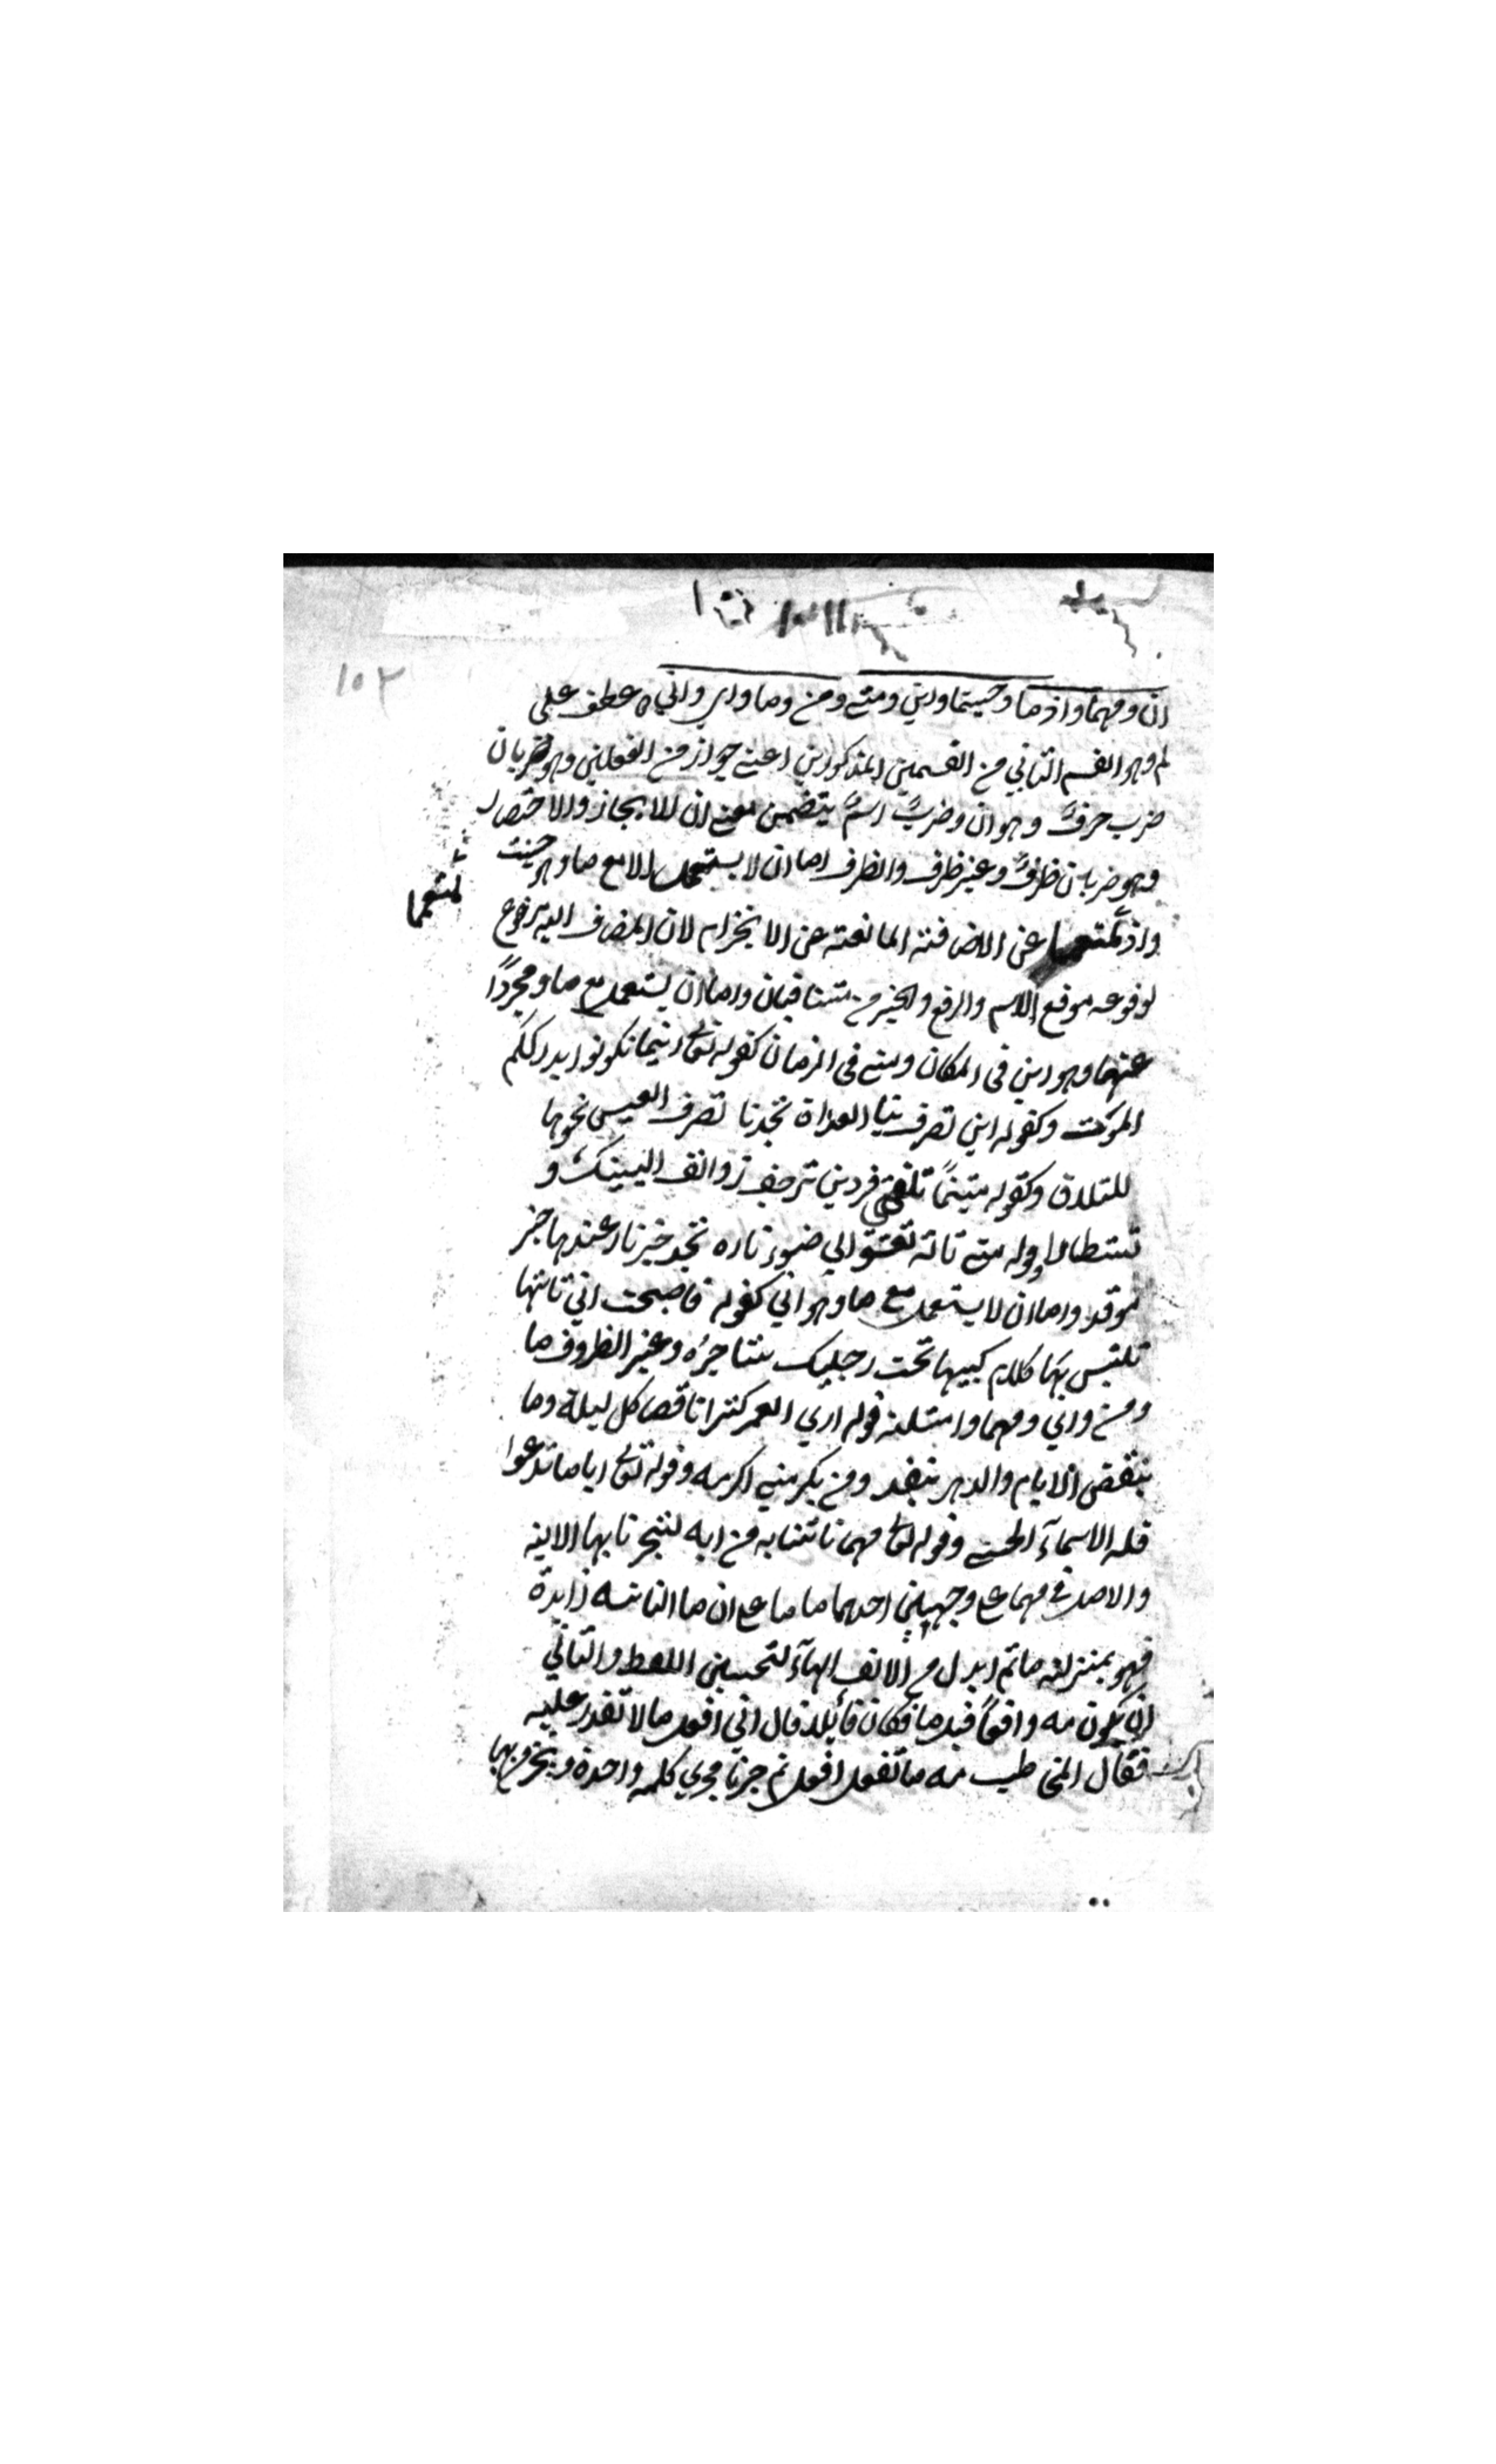 ١٠٣
ان ومهما واذما وحيثما واين ومتى ومن وما واي واني ه عطف على
لم وهو القسم الثاني من القسمين المذكورين اعني جوازم الفعلين وهو ضربان
ضرب حرف وهو ان وضرب اسم يتضمن معنى ان للايجاز والاختصار
وهو ضربان ظرف وغير ظرف والظرف اما ان لا يستعمل الا مع ما وهو حيث
واذ لمنعها عن الاضافة المانعة عن الانجزام لان المضاف اليه مرفوع
لمنعها
لوقوعه موقع الاسم والرفع والجزم متنافيان واما ان يستعمل مع ما ومجردا
عنها وهو اين في المكان ومتى في الزمان كقوله تعالى اينما تكونوا يدرككم
الموت وكقوله اين تصرف بنا العداة تجدنا نصرف العيس نحوها
للتلاق وكقوله متى ما تلقني فردين ترجف روانف اليتيك و
تستطارا وقوله متى تاته تعشو الى ضوء ناره تجد خير نار عندها خير
موقد واما ان لا يستعمل مع ما وهو اني كقوله فاصبحت اني تاتها
تلتبس بها كلا مركبيها تحت رجليك شاجر وغير الظروف ما
ومن واي ومهما وامثلته قوله ارى العمر كنزا ناقصا كل ليلة وما
تنقص الايام والدهر ينفد ومن يكرمني اكرمه وقوله تعالى ايا ما تدعوا
فله الاسماء الحسنى وقوله تعالى مهما تاتنا به من اية لتسحرنا بها الاية
والاصل في مهما على وجهين احدهما ما ما على ان ما الثانية زايدة
فهو بمنزلة ما ثم ابدل من الالف الهاء لتحسين اللفظ والثاني
ان يكون مه واقعا قبل ما فكان قائلا قال اني افعل ما لا تقدر عليه
فقال المخاطب مه ما تفعل افعل ثم جرتا مجرى كلمة واحدة ويجزم بها